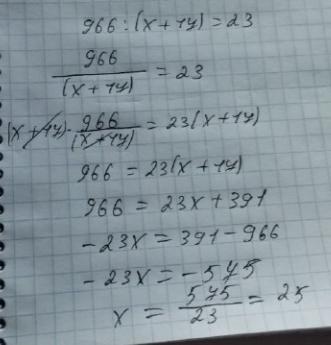 966 : (x + 17) = 23
966 / (x + 17) = 23
(x + 17) · 966 / (x + 17) = 23(x + 17)
966 = 23(x + 17)
966 = 23x + 391
- 23x = 391 - 966
- 23x = - 575
x = 575 / 23 = 25